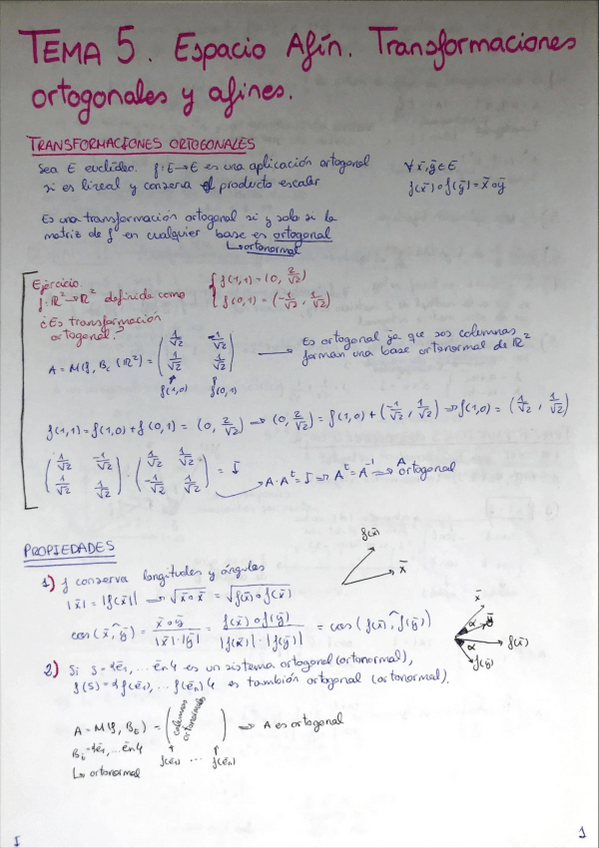 TEMA 5. Espacio Afín. Transformaciones
ortogonales y afines.
TRANSFORMACIONES ORTOGONALES
Sea E euclídeo. f: E → E es una aplicación ortogonal
si es lineal y conserva el producto escalar
∀ x̄, ȳ ∈ E
f(x̄) ∘ f(ȳ) = x̄ ∘ ȳ
Es una transformación ortogonal si y solo si la
matriz de f en cualquier base es ortogonal
↳ ortonormal
Ejercicio.
f: ℝ² → ℝ² definida como { f(1,1) = (0, 2/√2)
{ f(0,1) = (-1/√2, 1/√2)
¿Es transformación
ortogonal?
A = M(f, Bc (ℝ²)) = (1/√2 -1/√2
1/√2 1/√2) → Es ortogonal ya que sus columnas
forman una base ortonormal de ℝ²
f(1,0) f(0,1)
f(1,1) = f(1,0) + f(0,1) = (0, 2/√2) → (0, 2/√2) = f(1,0) + (-1/√2, 1/√2) ⇒ f(1,0) = (1/√2, 1/√2)
(1/√2 -1/√2
1/√2 1/√2) · (1/√2 1/√2
-1/√2 1/√2) = I
→ A·Aᵗ = I ⇒ Aᵗ = A⁻¹ ⇒ A ortogonal
PROPIEDADES
1) f conserva longitudes y ángulos
|x̄| = |f(x̄)| → √x̄∘x̄ = √f(x̄)∘f(x̄)
cos(x̄,^ȳ) = x̄∘ȳ / |x̄|·|ȳ| = f(x̄)∘f(ȳ) / |f(x̄)|·|f(ȳ)| = cos(f(x̄),^f(ȳ))
f(x̄)
x̄
x̄
ȳ
α
α
f(x̄)
f(ȳ)
2) Si S = {ē1, ... ēn} es un sistema ortogonal (ortonormal),
f(S) = {f(ē1), ... f(ēn)} es también ortogonal (ortonormal).
A = M(f, BE) = (columnas ortonormales) ⇒ A es ortogonal
BE = {ē1, ... ēn}
f(ē1) ... f(ēn)
↳ ortonormal
I
1